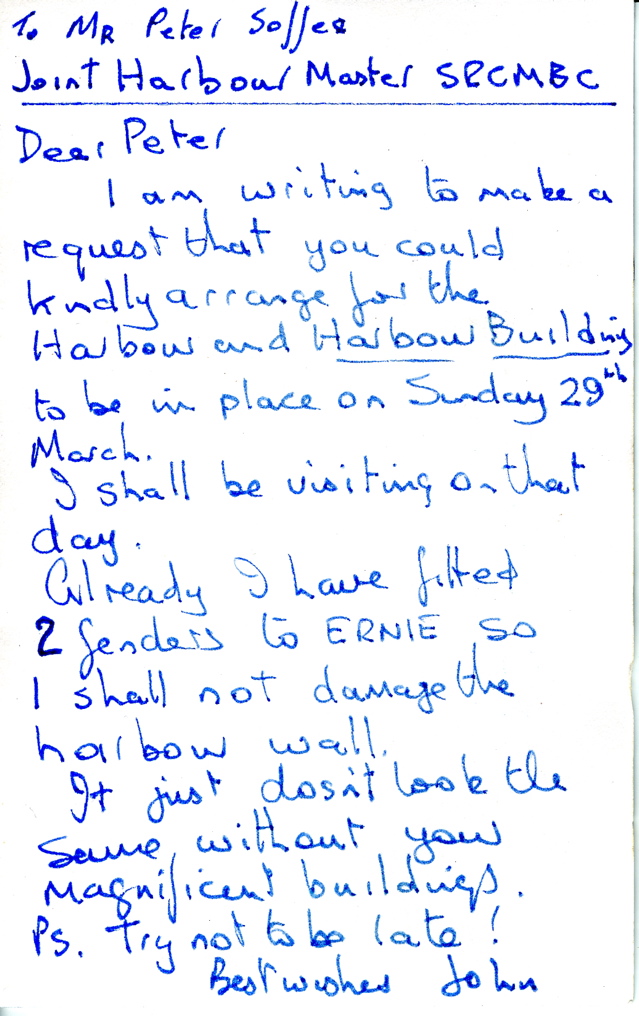 To MR Peter Soffe
Joint Harbour Master SRCMBC
Dear Peter
I am writing to make a
request that you could
kndly arrange for the
Harbour and Harbour Building
to be in place on Sunday 29th
March.
I shall be visiting on that
day.
Already I have fitted
2 fenders to ERNIE so
I shall not damage the
harbour wall.
It just dosn't look the
same without your
magnificent buildings.
Ps. Try not to be late!
Best wishes John